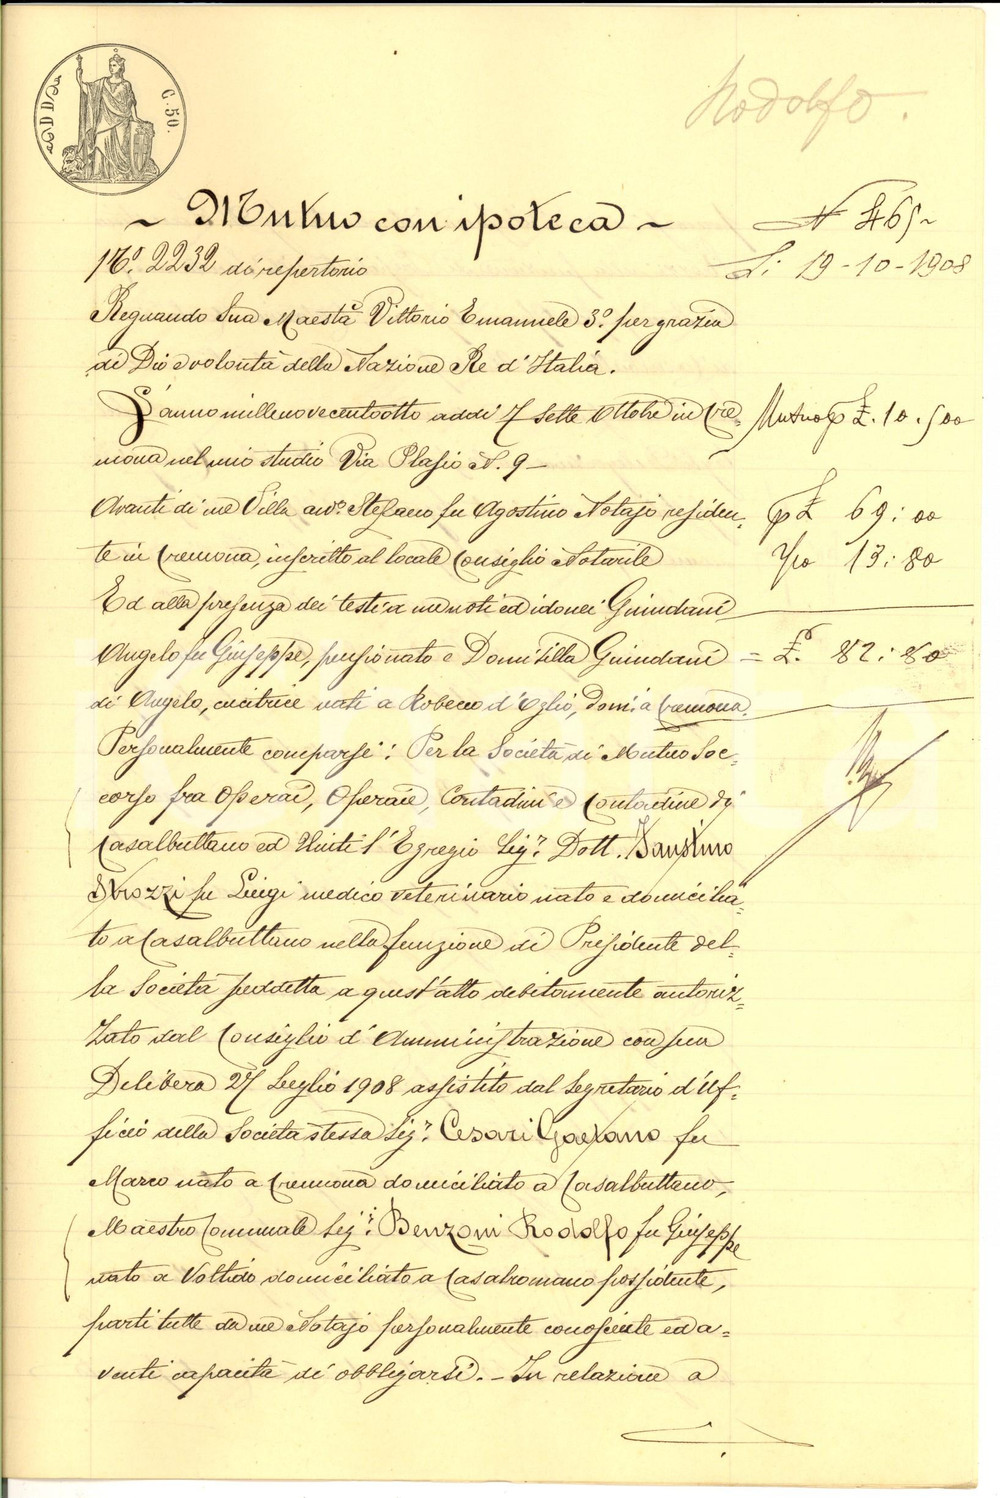 C. 50.
Rodolfo.
~ Mutuo con ipoteca ~
N 465
Li 19-10-1908
No. 2232 di repertorio
Regnando Sua Maestà Vittorio Emanuele 3o. per grazia
di Dio e volontà della Nazione Re d'Italia.
L'anno millenovecentootto addì 7 Sette Ottobre in Cre=
mona nel mio studio Via Plasio N. 9 -
Mutuo £. 10.500
Avanti di me Villa avvo. Stefano fu Agostino Notajo residen=
te in Cremona, inscritto al locale Consiglio Notarile
£ 69:00
13:80
Ed alla presenza dei testi a me noti ed idonei Guindani
Angelo fu Giuseppe, pensionato e Domitilla Guindani
= £. 82:80
di Angelo, cucitrice nati a Robecco d'Oglio, dom.i a Cremona.
Personalmente comparsi: Per la Società di Mutuo Soc=
corso fra Operai, Operaie, Contadini e Contadine di
Casalbuttano ed Uniti l'Egregio Sigr. Dott. Faustino
Strozzi fu Luigi medico veterinario nato e domicilia=
to a Casalbuttano nella funzione di Presidente del=
la Società suddetta a quest'atto debitamente autoriz=
zato dal Consiglio d'Amministrazione con sua
Delibera 27 Luglio 1908 assistito dal Segretario d'Uf=
ficio della Società stessa Sigr. Cesari Gaetano fu
Marco nato a Cremona domiciliato a Casalbuttano,
Maestro Comunale Sigr. Benzoni Rodolfo fu Giuseppe
nato a Voltido domiciliato a Casalromano possidente,
parti tutte da me Notajo personalmente conosciute ed a=
venti capacità di obbligarsi. - In relazione a